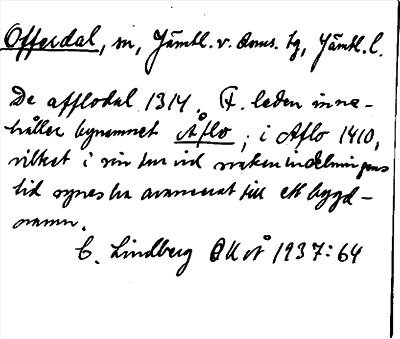 Offerdal, sn, Jämtl. v. doms. tg, Jämtl. l.
De afflodal 1314. F. leden inne-
håller bynamnet Åflo ; i Aflo 1410,
vilket i sin tur vid sockenindelningens
tid synes ha avancerat till ett bygd-
namn.
C. Lindberg OUÅ 1937:64